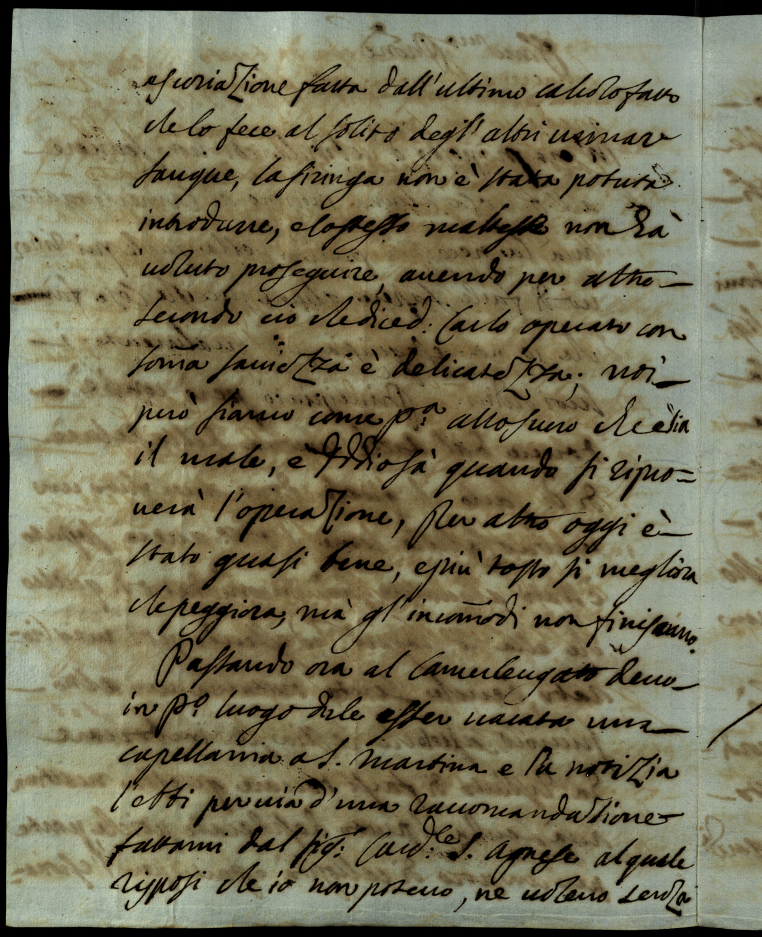 escoriazione fatta dall'ultimo calcolo fatto
che lo fece al solito degl'altri urinare
sangue, la siringa non è stata potuta
introdurre, e lo stesso maltese non hà
voluto proseguire, avendo per altro
secondo ciò che dice d: Carlo operato con
som̃a saviezza è delicatezza; noi
però siamo come p.ª all'oscuro che e sia
il male, è Iddio sà quando si ripro=
verà l'operazione, Per altro oggi è
stato quasi bene, e più tosto si megliora
che peggiora, mà gl'incom̃odi non finiscono.
Passando ora al Camerlengato devo
in p.º luogo dirle esser vacata una
capellania a S. Martina e la notizia
l'ebbi per via d'una raccomandazione
fattami dal sig.r Card.le S. Agnese al quale
risposi che io non potevo, ne volevo senza